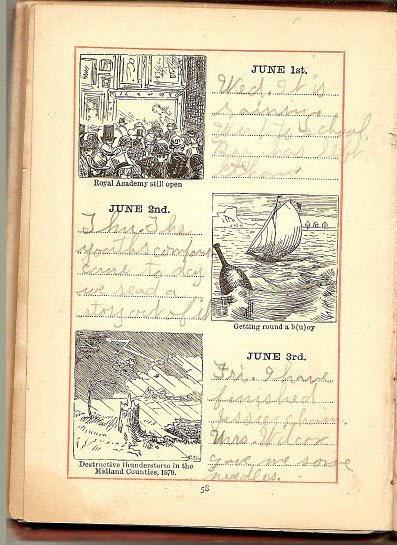 JUNE 1st.
Wed. It's
raining.
Went to school.
Ray has left
Royal Academy still open
JUNE 2nd.
Thu. The
youth's companion
came to day
we read a
story out of it
Getting round a b(u)oy
JUNE 3rd.
Fri. I have
finished
Jessie chain.
Mrs. Wilcox
gave me some
needles.
Destructive thunderstorm in the
Midland Counties, 1879.
58